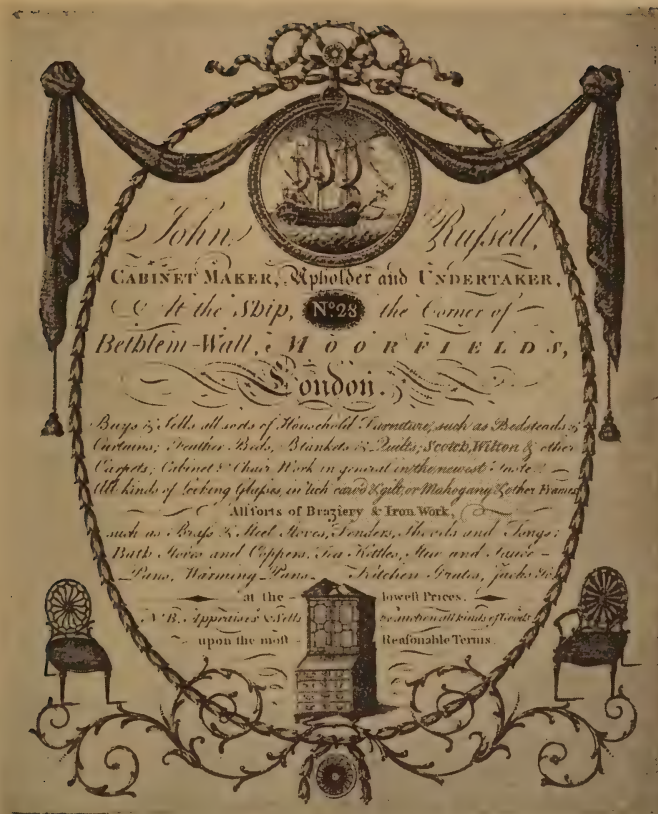 John Ruſsell,
CABINET MAKER, Upholder and UNDERTAKER,
At the Ship, No. 28 the Corner of
Bethlem-Wall, MOORFIELDS,
London.
Buys & Sells all sorts of Household Furniture, such as Bedsteads &
Curtains; Feather Beds, Blankets & Quilts; Scotch, Wilton & other
Carpets; Cabinet & Chair Work in general in the newest Taste
All kinds of Looking Glaſses, in rich carv'd & gilt, or Mahogany & other Frames
All ſorts of Braziery & Iron Work,
such as Braſs & Steel Stoves, Fenders, Shovels and Tongs;
Bath Stoves and Coppers, Tea Kettles, Stew and Sauce-
Pans, Warming-Pans, Kitchen Grates, Jacks &c.
at the loweſt Prices.
N.B. Appraises & Sells by auction all kinds of Goods
upon the moſt Reaſonable Terms.